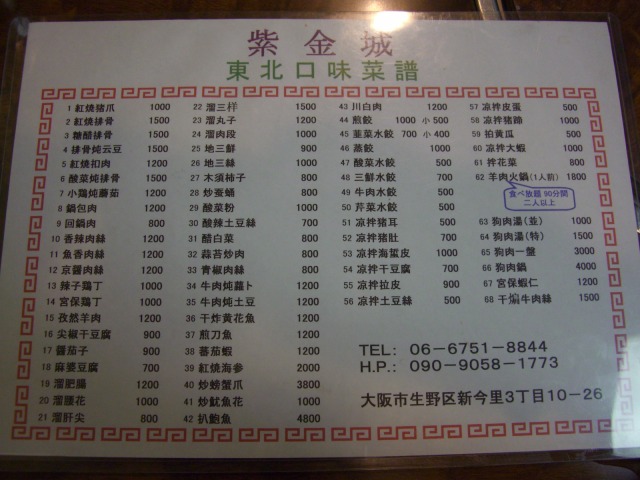 紫金城
東北口味菜譜
1 紅燒猪爪 1000
2 紅燒排骨 1500
3 糖醋排骨 1500
4 排骨炖云豆 1500
5 紅燒扣肉 1200
6 酸菜炖排骨 1500
7 小鶏炖蘑茹 1200
8 鍋包肉 1200
9 回鍋肉 800
10 香辣肉絲 1200
11 魚香肉絲 1200
12 京醤肉絲 1200
13 辣子鶏丁 1000
14 宮保鶏丁 1000
15 孜然羊肉 1200
16 尖椒干豆腐 900
17 醤茄子 900
18 麻婆豆腐 700
19 溜肥腸 1200
20 溜腰花 1000
21 溜肝尖 800
22 溜三样 1500
23 溜丸子 1200
24 溜肉段 1000
25 地三鮮 900
26 地三絲 1000
27 木須柿子 800
28 炒蚕蛹 800
29 酸菜粉 1000
30 酸辣土豆絲 700
31 醋白菜 800
32 蒜苔炒肉 800
33 青椒肉絲 800
34 牛肉炖蘿卜 1200
35 牛肉炖土豆 1200
36 干炸黄花魚 1200
37 煎刀魚 1200
38 蕃茄蝦 1200
39 紅燒海参 2000
40 炒螃蟹爪 3800
41 炒魷魚花 1000
42 扒鮑魚 4800
43 川白肉 1200
44 煎餃 1000 小 500
45 韮菜水餃 700 小 400
46 蒸餃 1000
47 酸菜水餃 500
48 三鮮水餃 700
49 牛肉水餃 500
50 芹菜水餃 500
51 凉拌猪耳 500
52 凉拌猪肚 700
53 凉拌海蜇皮 1000
54 凉拌干豆腐 700
55 凉拌拉皮 900
56 凉拌土豆絲 500
57 凉拌皮蛋 500
58 凉拌猪蹄 1000
59 拍黄瓜 500
60 凉拌大蝦 1000
61 拌花菜 800
62 羊肉火鍋(1人前) 1800
食べ放題 90分間
二人以上
63 狗肉湯(並) 1000
64 狗肉湯(特) 1500
65 狗肉一盤 3000
66 狗肉鍋 4000
67 宮保蝦仁 1200
68 干煸牛肉絲 1500
TEL: 06-6751-8844
H.P.: 090-9058-1773
大阪市生野区新今里3丁目10-26